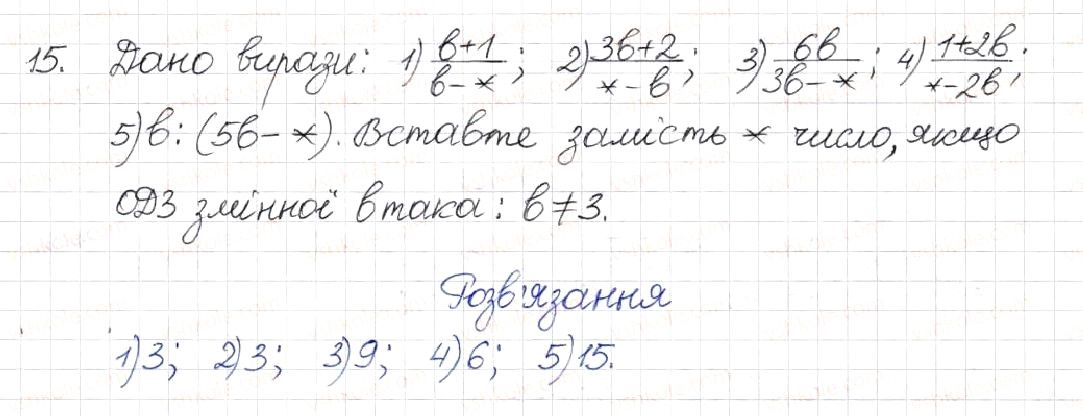 15. Дано вирази: 1) в+1/в-*; 2) 3в+2/*-в; 3) 6в/3в-*; 4) 1+2в/*-2в;
5) в : (5в-*). Вставте замість * число, якщо
ОДЗ змінної в така: в≠3.
Розв'язання
1) 3; 2) 3; 3) 9; 4) 6; 5) 15.